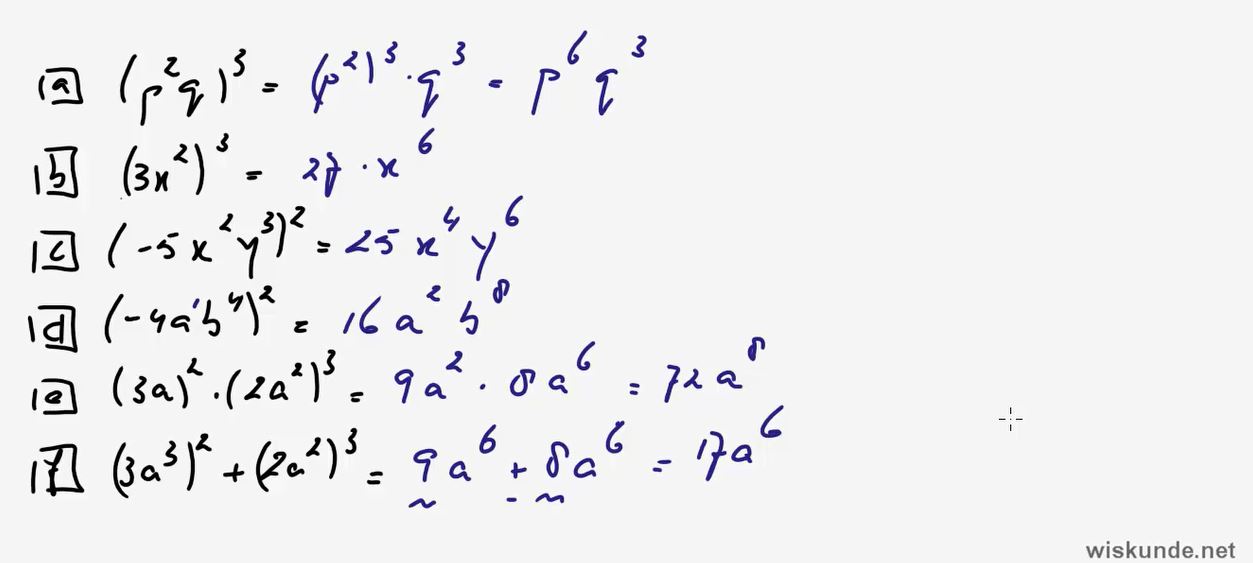 1a (p²q)³ = (p²)³ · q³ = p⁶ q³
1b (3x²)³ = 27 · x⁶
1c (-5x²y³)² = 25x⁴y⁶
1d (-4a¹b⁴)² = 16a²b⁸
1e (3a)² · (2a²)³ = 9a² · 8a⁶ = 72a⁸
1f (3a³)² + (2a²)³ = 9a⁶ + 8a⁶ = 17a⁶
wiskunde.net